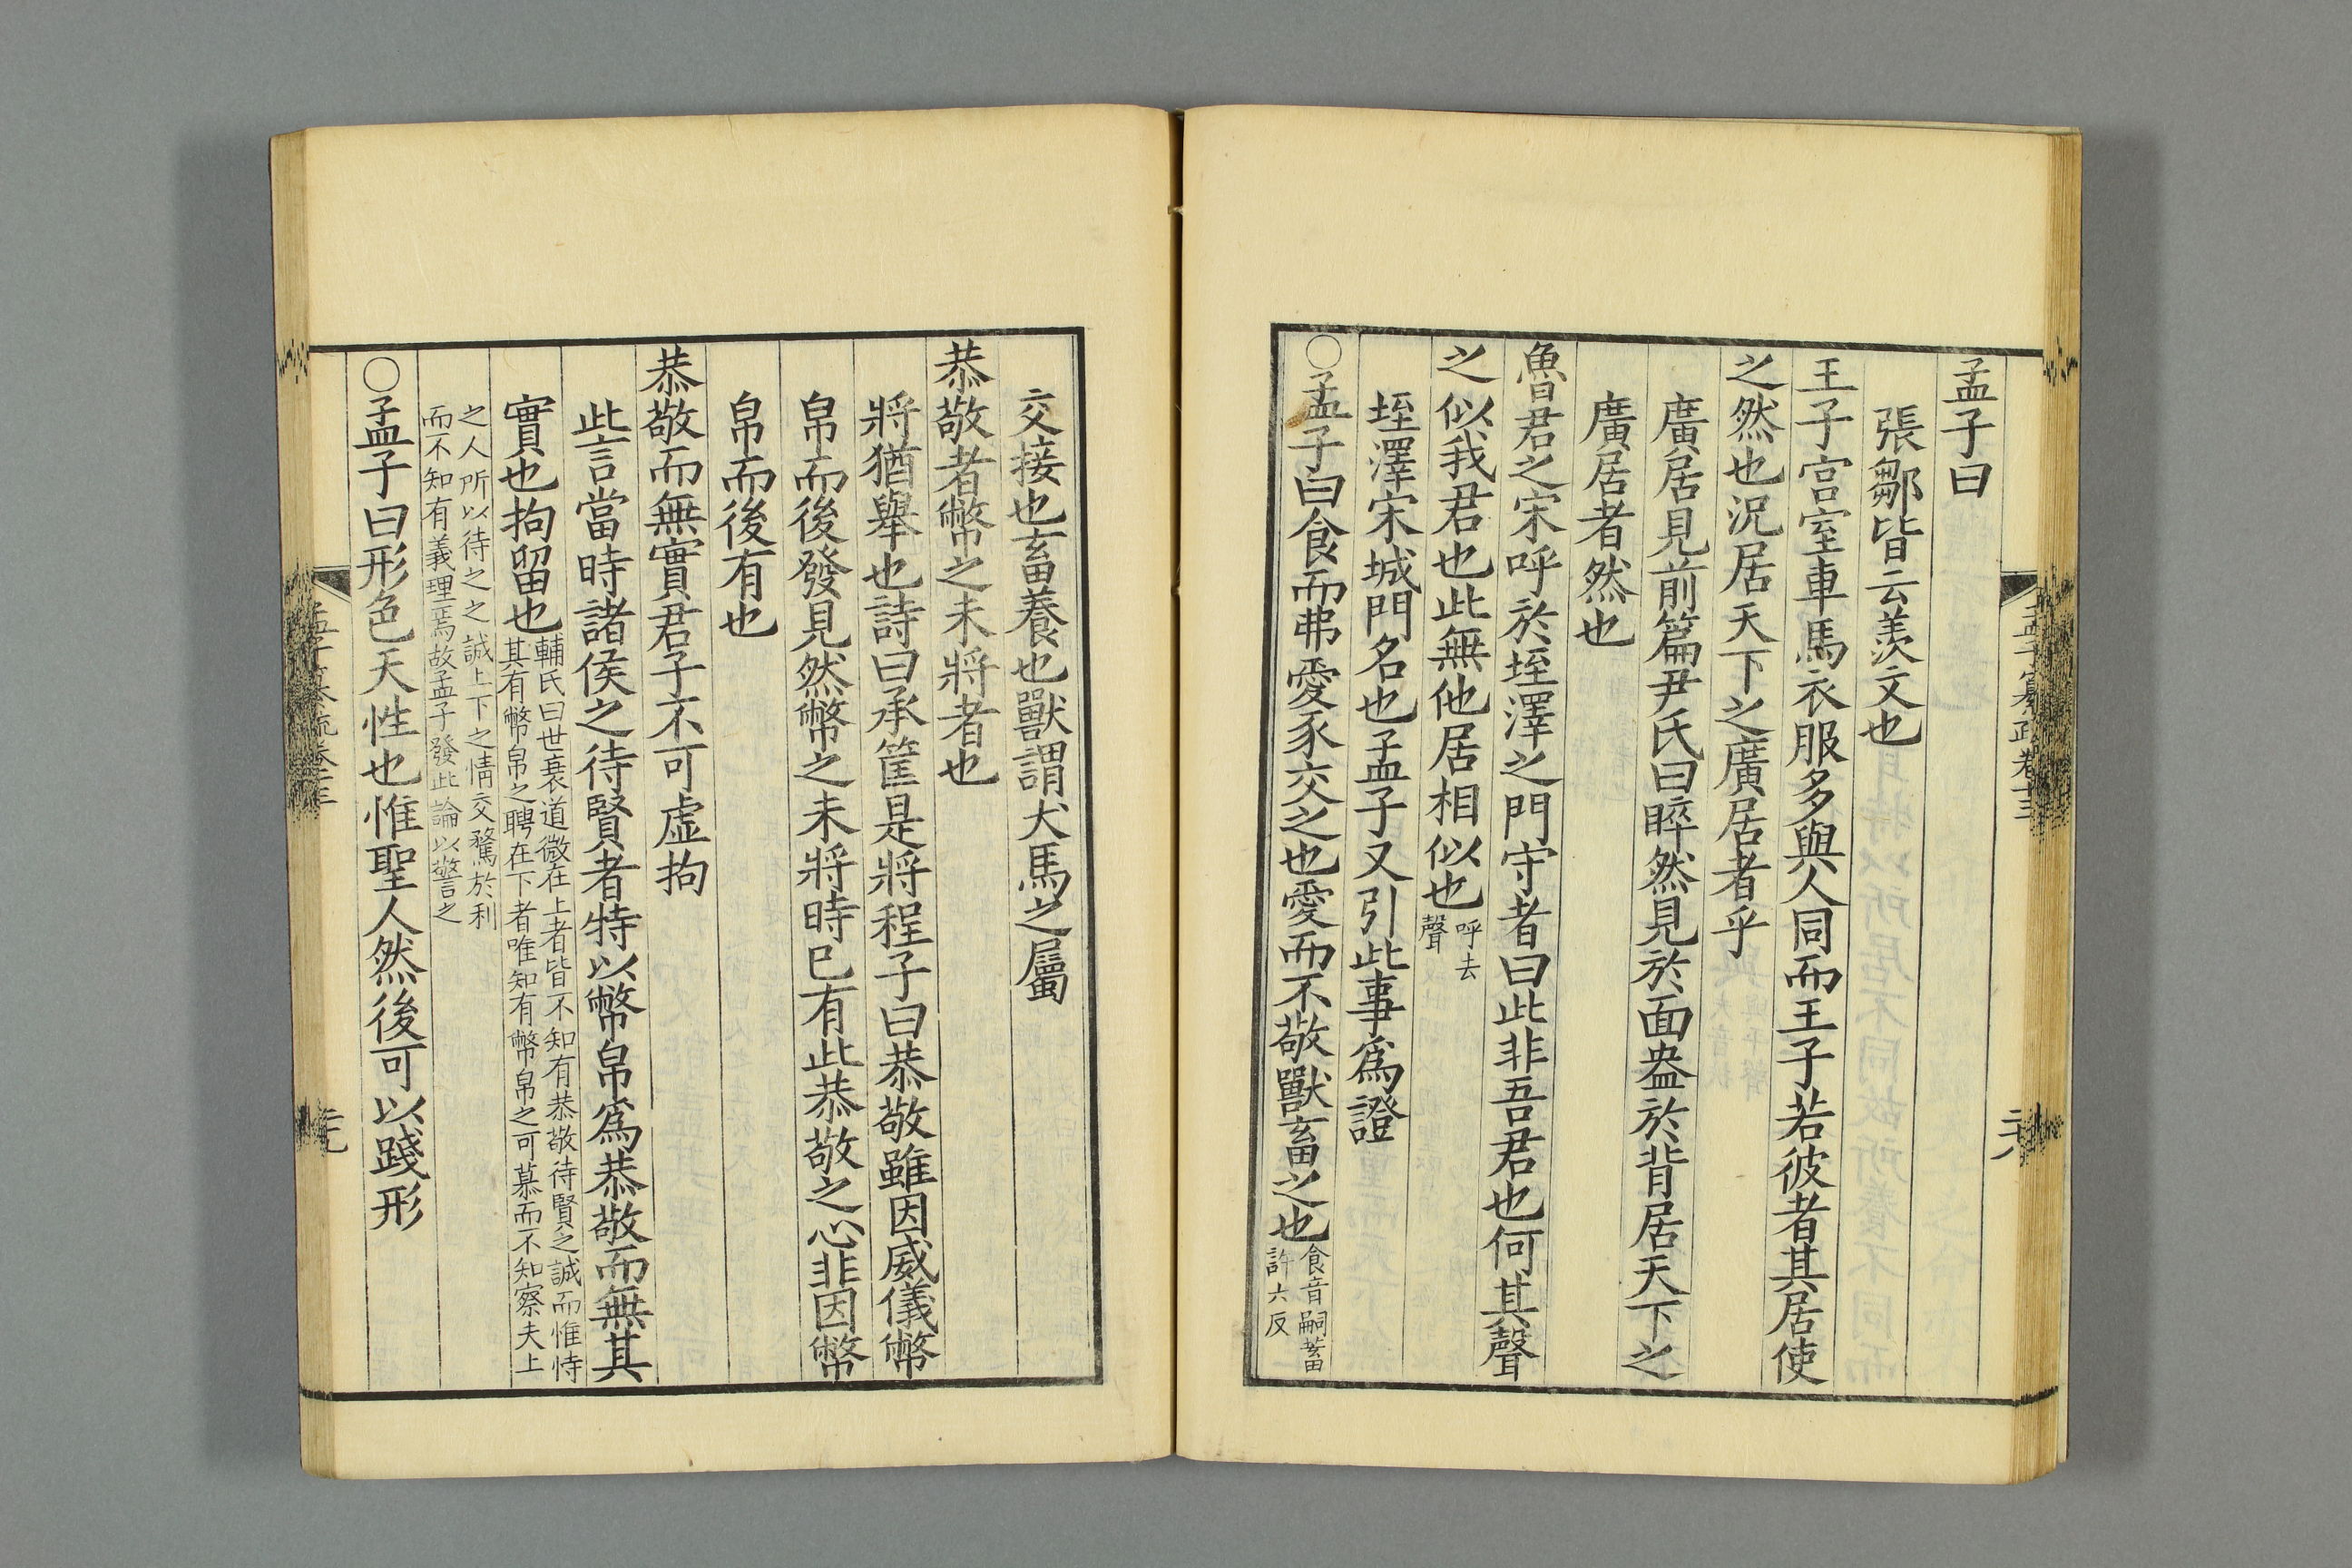 孟子曰
張鄒皆云羨文也
王子宮室車馬衣服多與人同而王子若彼者其居使
之然也況居天下之廣居者乎
廣居見前篇尹氏曰睟然見於面盎於背居天下之
廣居者然也
魯君之宋呼於垤澤之門守者曰此非吾君也何其聲
之似我君也此無他居相似也呼去
聲
垤澤宋城門名也孟子又引此事爲證
○孟子曰食而弗愛豕交之也愛而不敬獸畜之也食音嗣畜
許六反
交接也畜養也獸謂犬馬之屬
恭敬者幣之未將者也
將猶舉也詩曰承筐是將程子曰恭敬雖因威儀幣
帛而後發見然幣之未將時已有此恭敬之心非因幣
帛而後有也
恭敬而無實君子不可虛拘
此言當時諸侯之待賢者特以幣帛爲恭敬而無其
實也拘留也輔氏曰世衰道微在上者皆不知有恭敬待賢之誠而惟恃
其有幣帛之聘在下者唯知有幣帛之可慕而不知察夫上
之人所以待之之誠上下之情交騖於利
而不知有義理焉故孟子發此論以警之
○孟子曰形色天性也惟聖人然後可以踐形